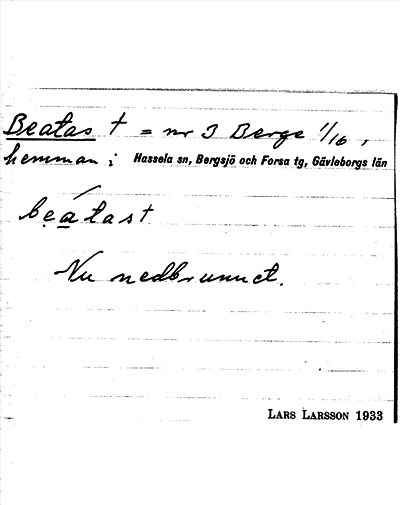 Beatas † = nr 3 Berge 1/16,
hemman i Hassela sn, Bergsjö och Forsa tg, Gävleborgs län
beatast
Nu nedbrunnet.
LARS LARSSON 1933